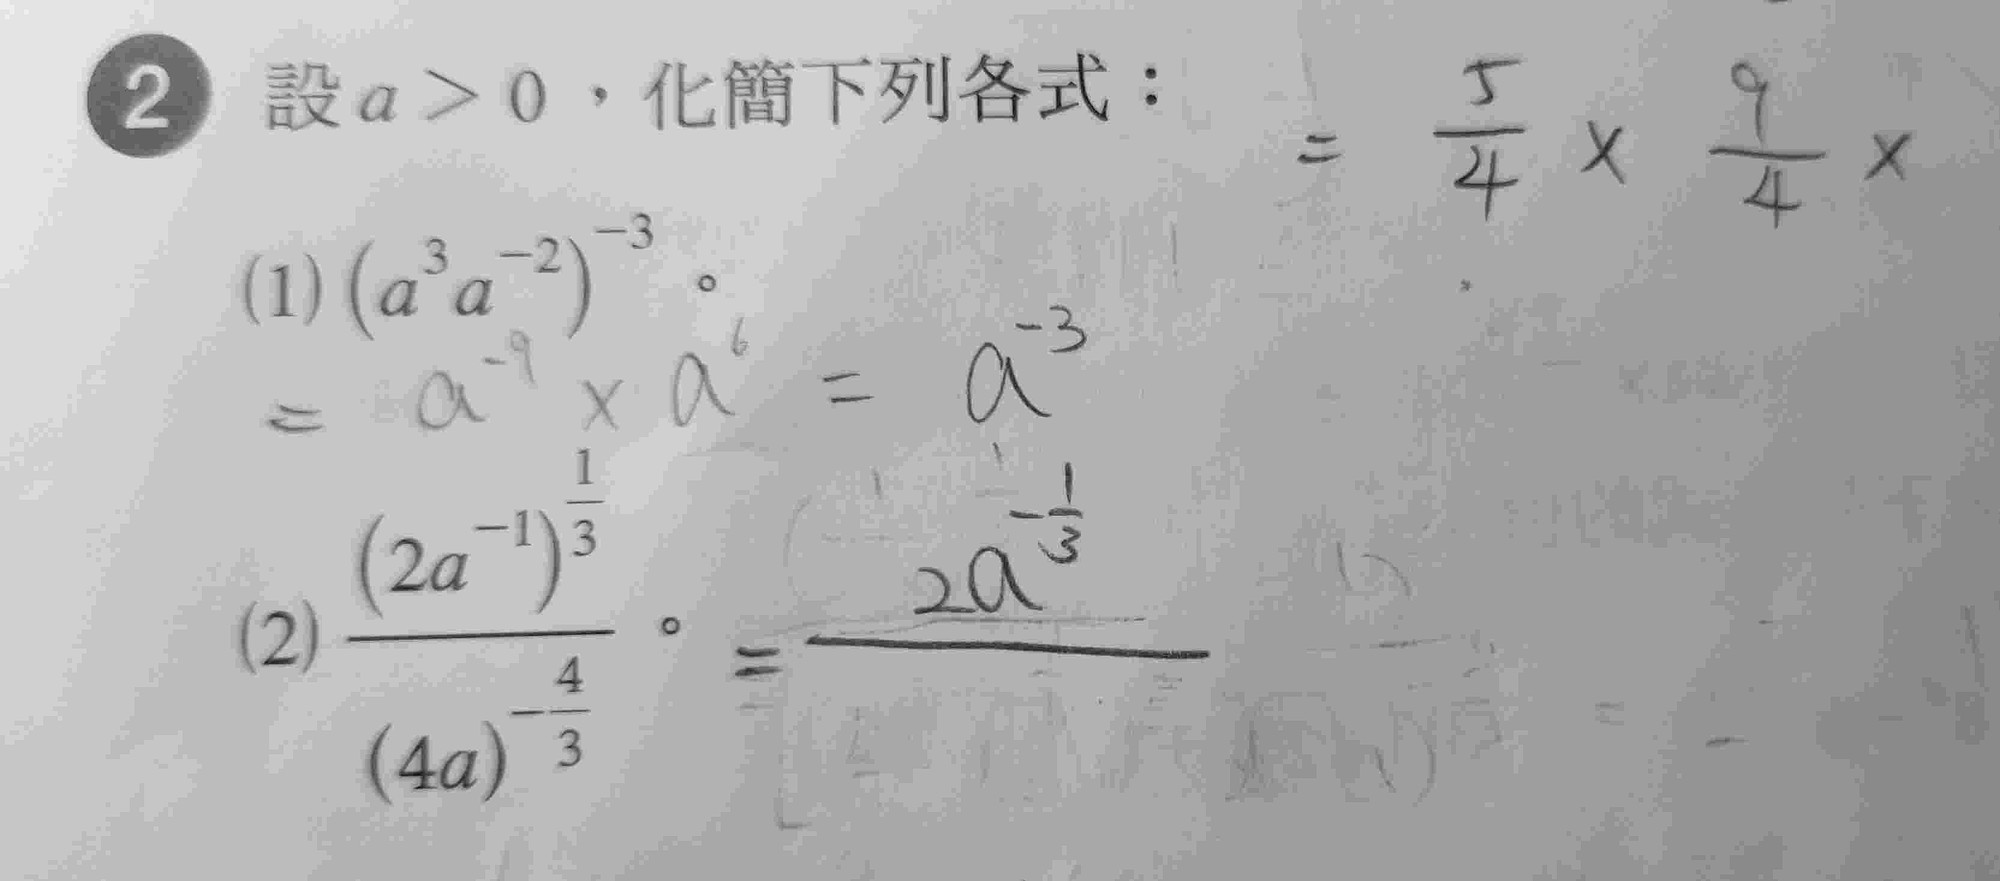 2 設 a > 0，化簡下列各式：
= 5/4 × 9/4 ×
(1) (a³a⁻²)⁻³。
= a⁻⁹ × a⁶ = a⁻³
(2) (2a⁻¹)^(1/3) / (4a)^(-4/3)。 = 2a^(-1/3) /